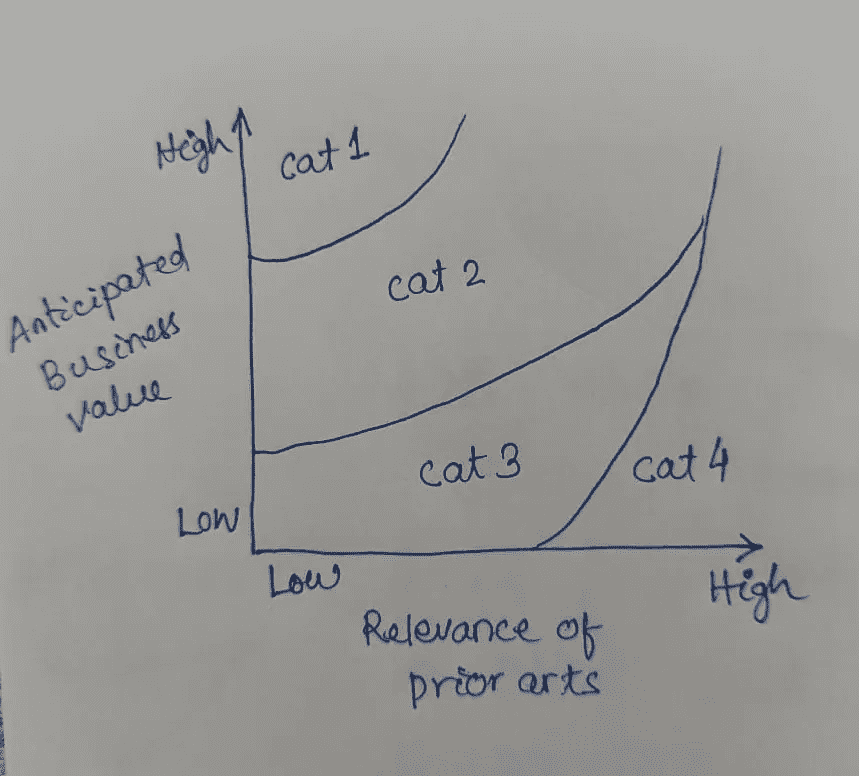 High
cat 1
Anticipated
Business
value
cat 2
cat 3
cat 4
Low
Low
High
Relevance of
prior arts